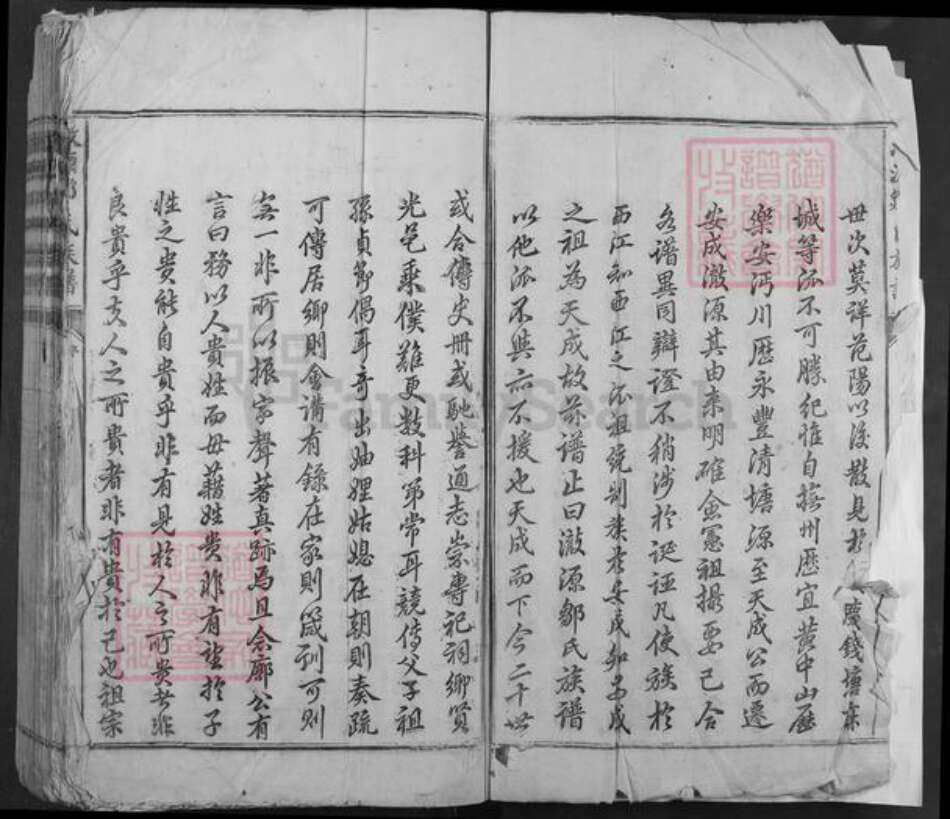 毋次莫詳范陽以後散見於 慶錢塘京
城等派不可勝紀惟自撫州歷宜黃中山歷
樂安沔川歷永豐清塘源至天成公而遷
安成澈源其由来明確僉憲祖撮要已合
各譜異同辯證不稍涉於誕誣凡使族於
西江知西江之派祖統制族於安成知安成
之祖為天成故茲譜止曰澈源鄒氏族譜
以他派不與亦不援也天成而下今二十世
或合傳史冊或馳譽通志崇專祀祠鄉賢
光邑乘僕難更数科第常耳競傳父子祖
孫貞節偶耳奇出妯娌姑媳在朝則奏疏
可傳居鄉則會講有錄在家則箴利可則
無一非所以振宗聲著真跡焉且余廓公有
言曰務以人貴姓而毋藉姓貴非有望於子
姓之貴能自貴乎非有見於人之所貴者非
良貴乎夫人之所貴者非有貴於己也祖宗
FamilySearch